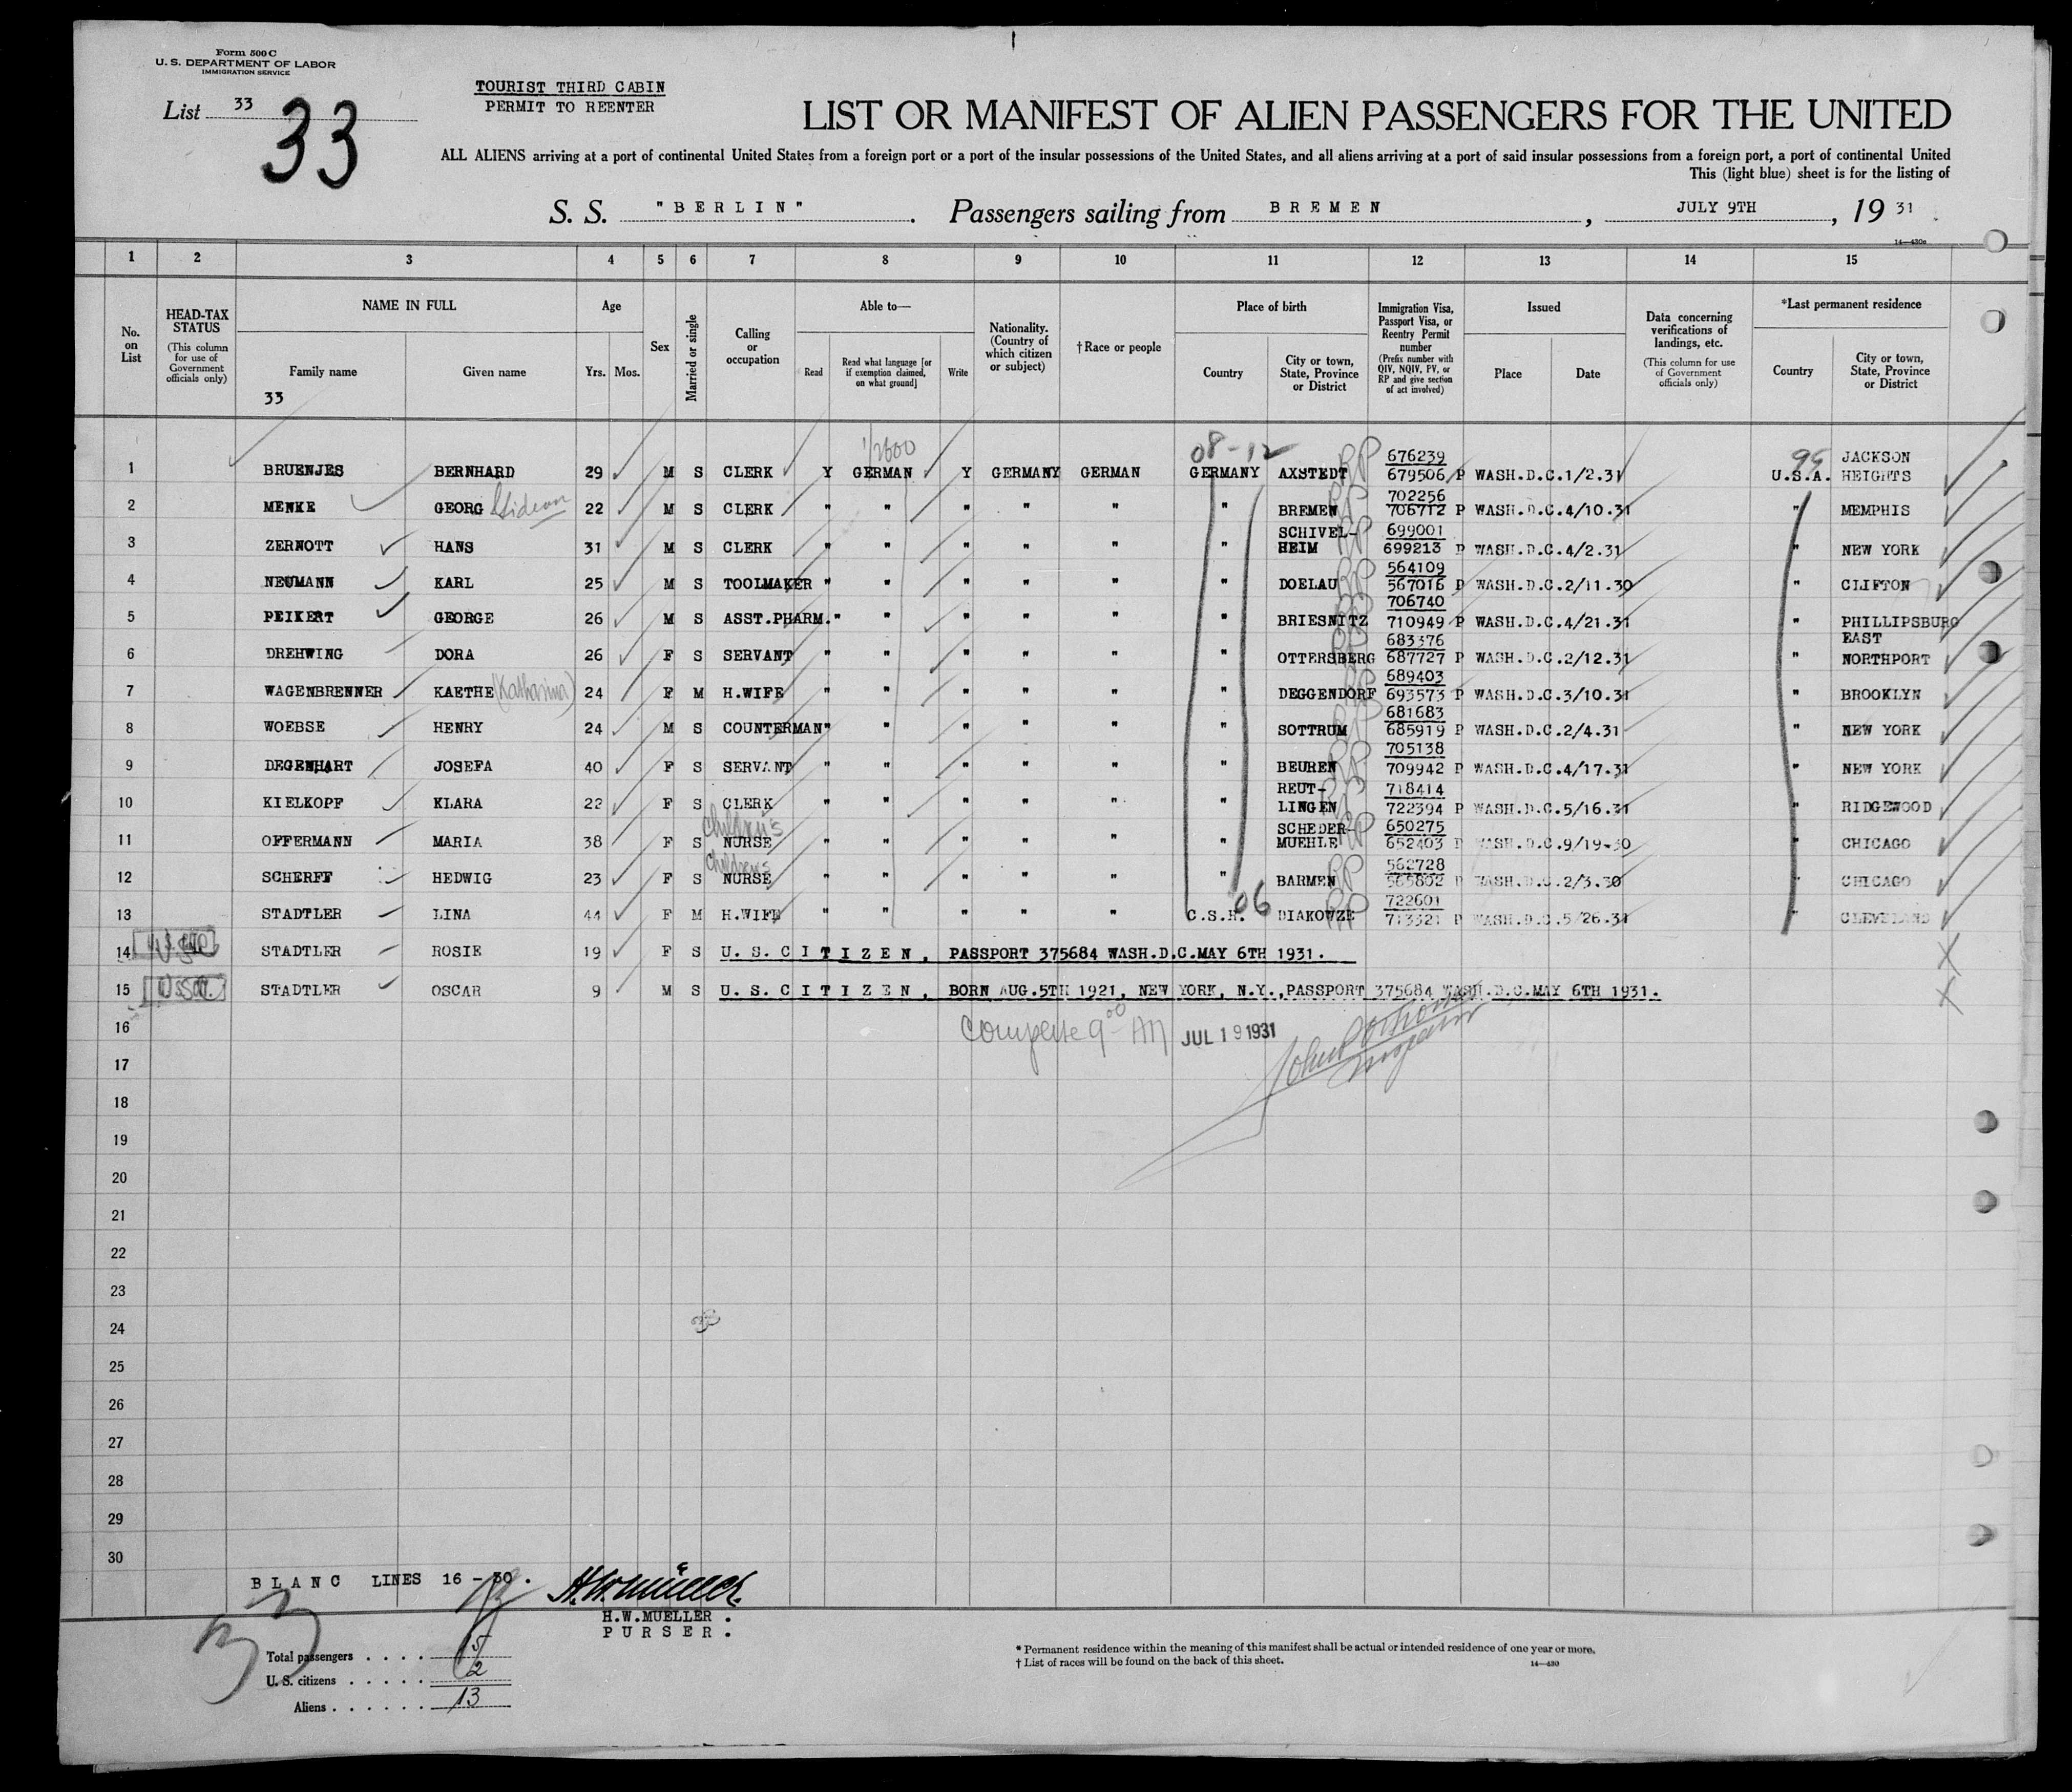 Form 500 C
U. S. DEPARTMENT OF LABOR
IMMIGRATION SERVICE
List 33
33
TOURIST THIRD CABIN
PERMIT TO REENTER
LIST OR MANIFEST OF ALIEN PASSENGERS FOR THE UNITED
ALL ALIENS arriving at a port of continental United States from a foreign port or a port of the insular possessions of the United States, and all aliens arriving at a port of said insular possessions from a foreign port, a port of continental United
This (light blue) sheet is for the listing of
S. S. "BERLIN". Passengers sailing from BREMEN, JULY 9TH, 19 31
14—430c
1 2 3 4 5 6 7 8 9 10 11 12 13 14 15
No. on List
HEAD-TAX STATUS (This column for use of Government officials only)
NAME IN FULL
Family name
Given name
33
Age
Yrs. Mos.
Sex
Married or single
Calling or occupation
Able to—
Read
Read what language [or if exemption claimed, on what ground]
Write
Nationality. (Country of which citizen or subject)
†Race or people
Place of birth
Country
City or town, State, Province or District
Immigration Visa, Passport Visa, or Reentry Permit number (Prefix number with QIV, NQIV, PV, or RP and give section of act involved)
Issued
Place
Date
Data concerning verifications of landings, etc. (This column for use of Government officials only)
*Last permanent residence
Country
City or town, State, Province or District
08-12 99
1 BRUENJES BERNHARD 29 M S CLERK Y GERMAN Y GERMANY GERMAN GERMANY AXSTEDT RP 676239 679506 P WASH.D.C.1/2.31 U.S.A. JACKSON HEIGHTS
2 MENKE GEORG 22 M S CLERK " " " " " " BREMEN RP 702256 706712 P WASH.D.C.4/10.31 " MEMPHIS
3 ZERNOTT HANS 31 M S CLERK " " " " " " SCHIVEL-HEIM RP 699001 699213 P WASH.D.C.4/2.31 " NEW YORK
4 NEUMANN KARL 25 M S TOOLMAKER " " " " " " DOELAU RP 564109 567016 P WASH.D.C.2/11.30 " CLIFTON
5 PEIKERT GEORGE 26 M S ASST.PHARM. " " " " " " BRIESNITZ RP 706740 710949 P WASH.D.C.4/21.31 " PHILLIPSBURG
6 DREHWING DORA 26 F S SERVANT " " " " " " OTTERSBERG RP 683376 687727 P WASH.D.C.2/12.31 " EAST NORTHPORT
7 WAGENBRENNER KAETHE (Katharina) 24 F M H.WIFE " " " " " " DEGGENDORF RP 689403 693573 P WASH.D.C.3/10.31 " BROOKLYN
8 WOEBSE HENRY 24 M S COUNTERMAN " " " " " " SOTTRUM RP 681683 685919 P WASH.D.C.2/4.31 " NEW YORK
9 DEGENHART JOSEFA 40 F S SERVANT " " " " " " BEUREN RP 705138 709942 P WASH.D.C.4/17.31 " NEW YORK
10 KIELKOPF KLARA 22 F S CLERK " " " " " " REUT-LINGEN RP 718414 722394 P WASH.D.C.5/16.31 " RIDGEWOOD
11 OFFERMANN MARIA 38 F S Children's NURSE " " " " " " SCHEDER-MUEHLE RP 650275 652403 P WASH.D.C.9/19-30 " CHICAGO
12 SCHERFF HEDWIG 23 F S Children's NURSE " " " " " " BARMEN RP 562728 565802 P WASH.D.C.2/3.30 " CHICAGO
13 STADTLER LINA 44 F M H.WIFE " " " " " C.S.R. 06 DIAKOWZE RP 722601 713321 P WASH.D.C.5/26.31 " CLEVELAND
14 STADTLER ROSIE 19 F S U. S. CITIZEN, PASSPORT 375684 WASH.D.C.MAY 6TH 1931.
15 STADTLER OSCAR 9 M S U. S. CITIZEN, BORN AUG.5TH 1921, NEW YORK, N.Y.,PASSPORT 375684 WASH.D.C.MAY 6TH 1931.
16 9 00 AM JUL 19 1931
17
18
19
20
21
22
23
24
25
26
27
28
29
30
BLANC LINES 16 - 30.
H.W.Müller
H.W.MUELLER.
PURSER.
33
Total passengers 15
U. S. citizens 2
Aliens 13
* Permanent residence within the meaning of this manifest shall be actual or intended residence of one year or more.
† List of races will be found on the back of this sheet.
14—430